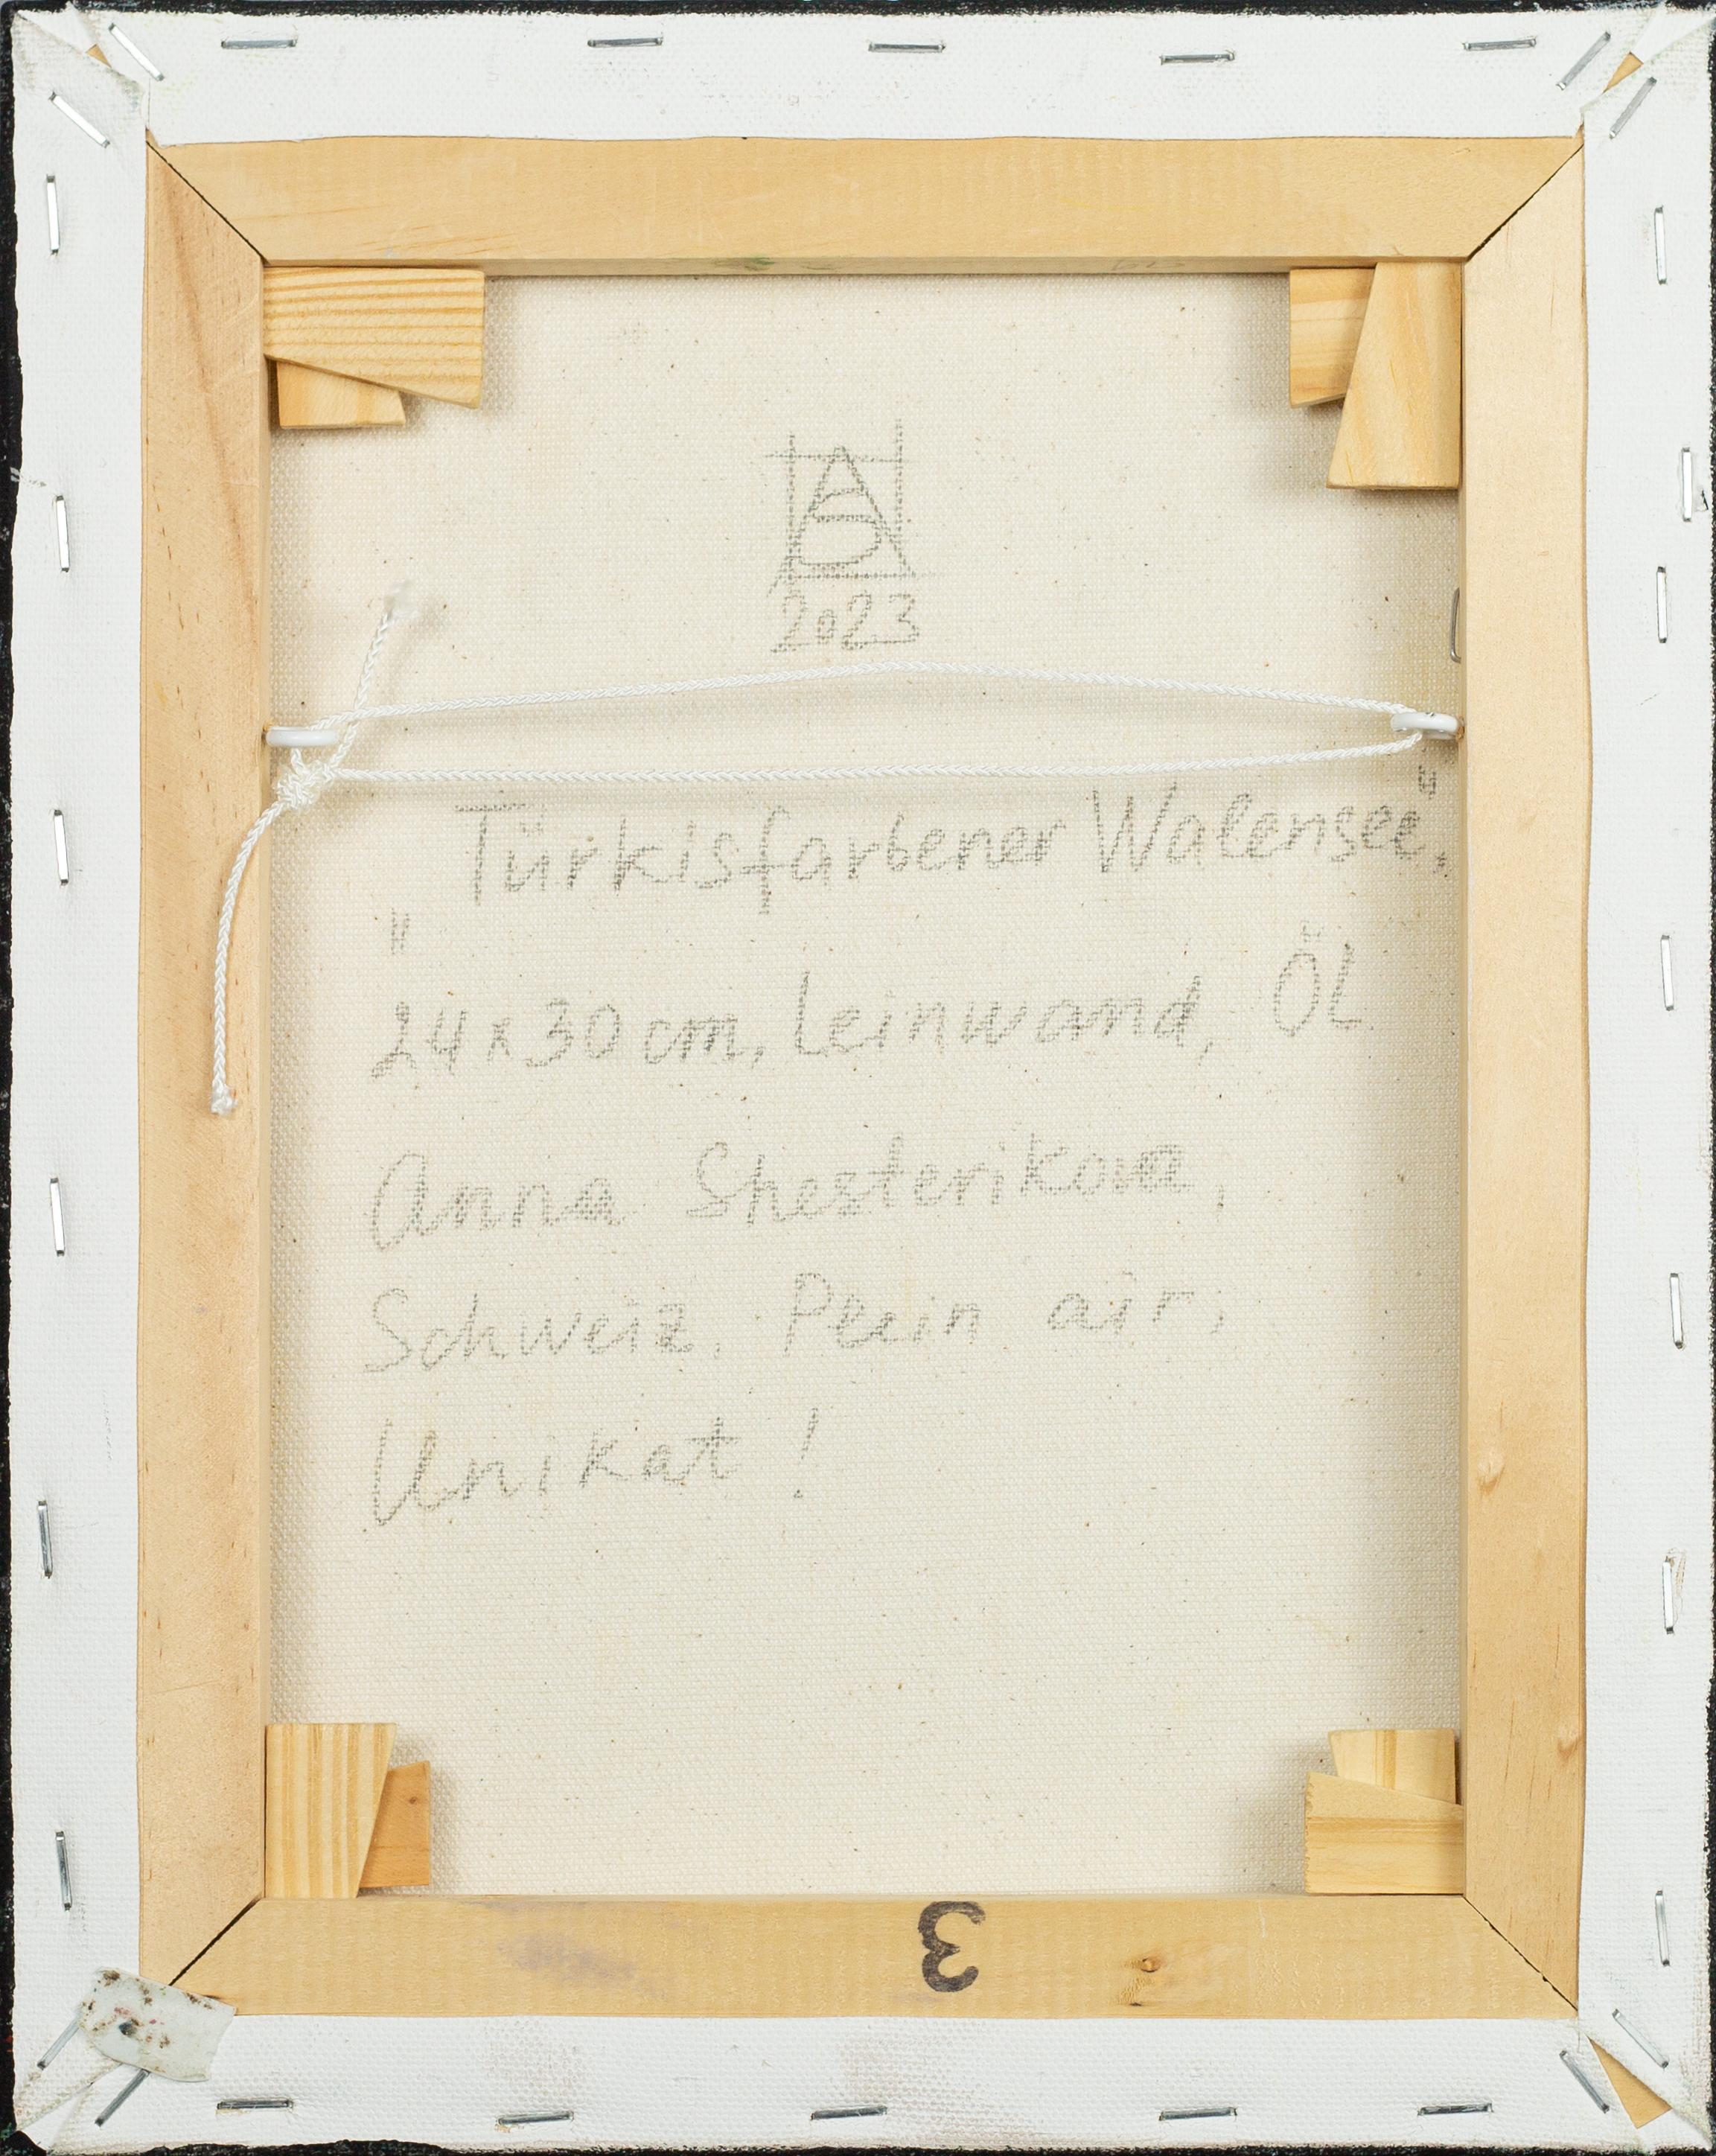 2023
"Türkisfarbener Walensee",
24 x 30 cm, Leinwand, Öl
Anna Shesterikova,
Schweiz, Plein air,
Unikat!
3